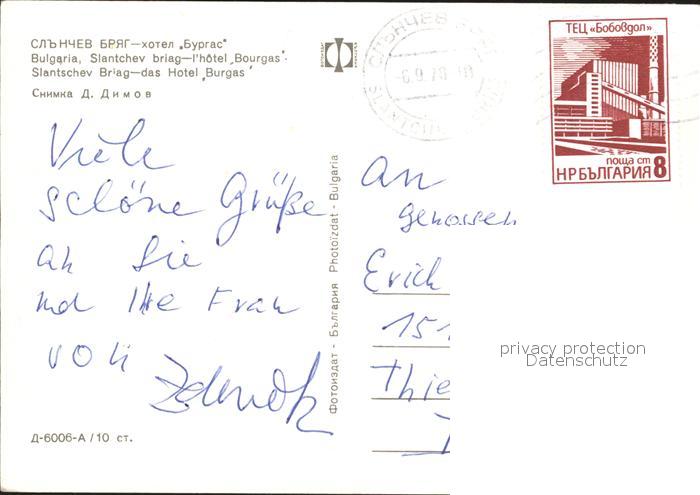 СЛЪНЧЕВ БРЯГ—хотел „Бургас“
Bulgaria, Slantchev briag—l'hôtel „Bourgas“
Slantschev Briag—das Hotel „Burgas“
Снимка Д. Димов
Viele
schöne Grüße
an Sie
und Ihre Frau
von
Zdenek
Д-6006-А / 10 ст.
Фотоиздат - България Photoizdat - Bulgaria
СЛЪНЧЕВ
6.9.78
ТЕЦ „Бобовдол“
поща ст
НР БЪЛГАРИЯ 8
An
Genossen
Erich
151
Thie
privacy protection
Datenschutz